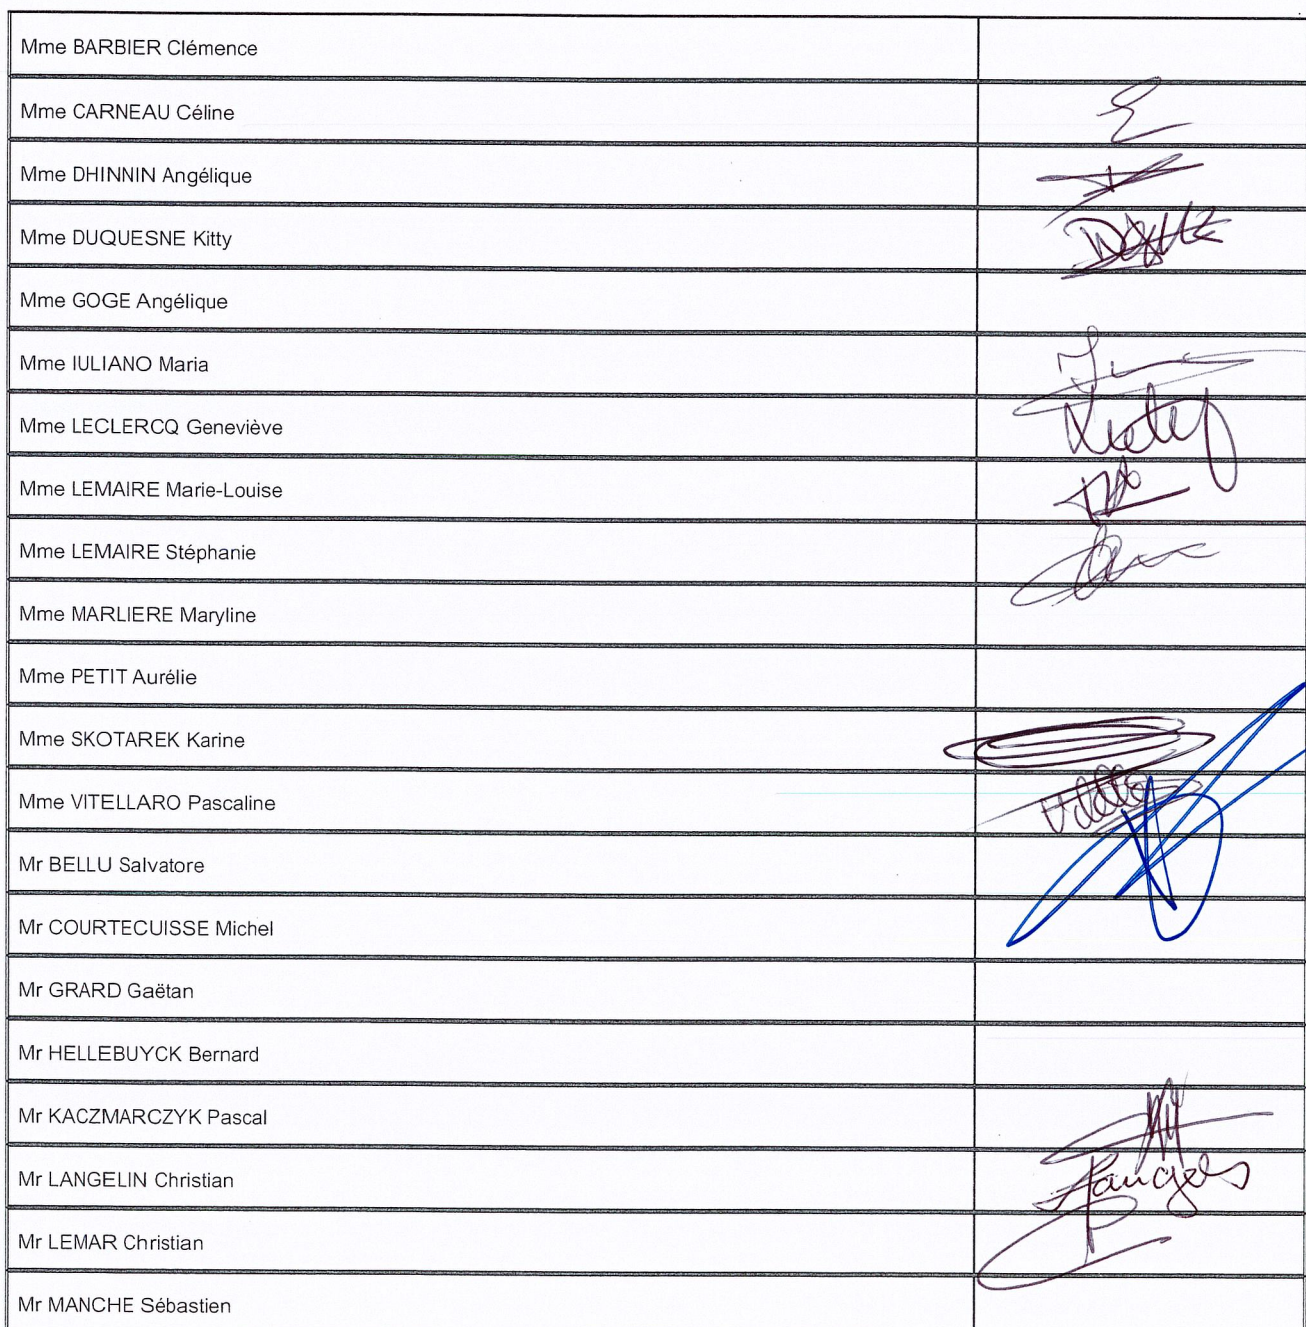 Mme BARBIER Clémence
Mme CARNEAU Céline
Mme DHINNIN Angélique
Mme DUQUESNE Kitty
Mme GOGE Angélique
Mme IULIANO Maria
Mme LECLERCQ Geneviève
Mme LEMAIRE Marie-Louise
Mme LEMAIRE Stéphanie
Mme MARLIERE Maryline
Mme PETIT Aurélie
Mme SKOTAREK Karine
Mme VITELLARO Pascaline
Mr BELLU Salvatore
Mr COURTECUISSE Michel
Mr GRARD Gaëtan
Mr HELLEBUYCK Bernard
Mr KACZMARCZYK Pascal
Mr LANGELIN Christian
Mr LEMAR Christian
Mr MANCHE Sébastien